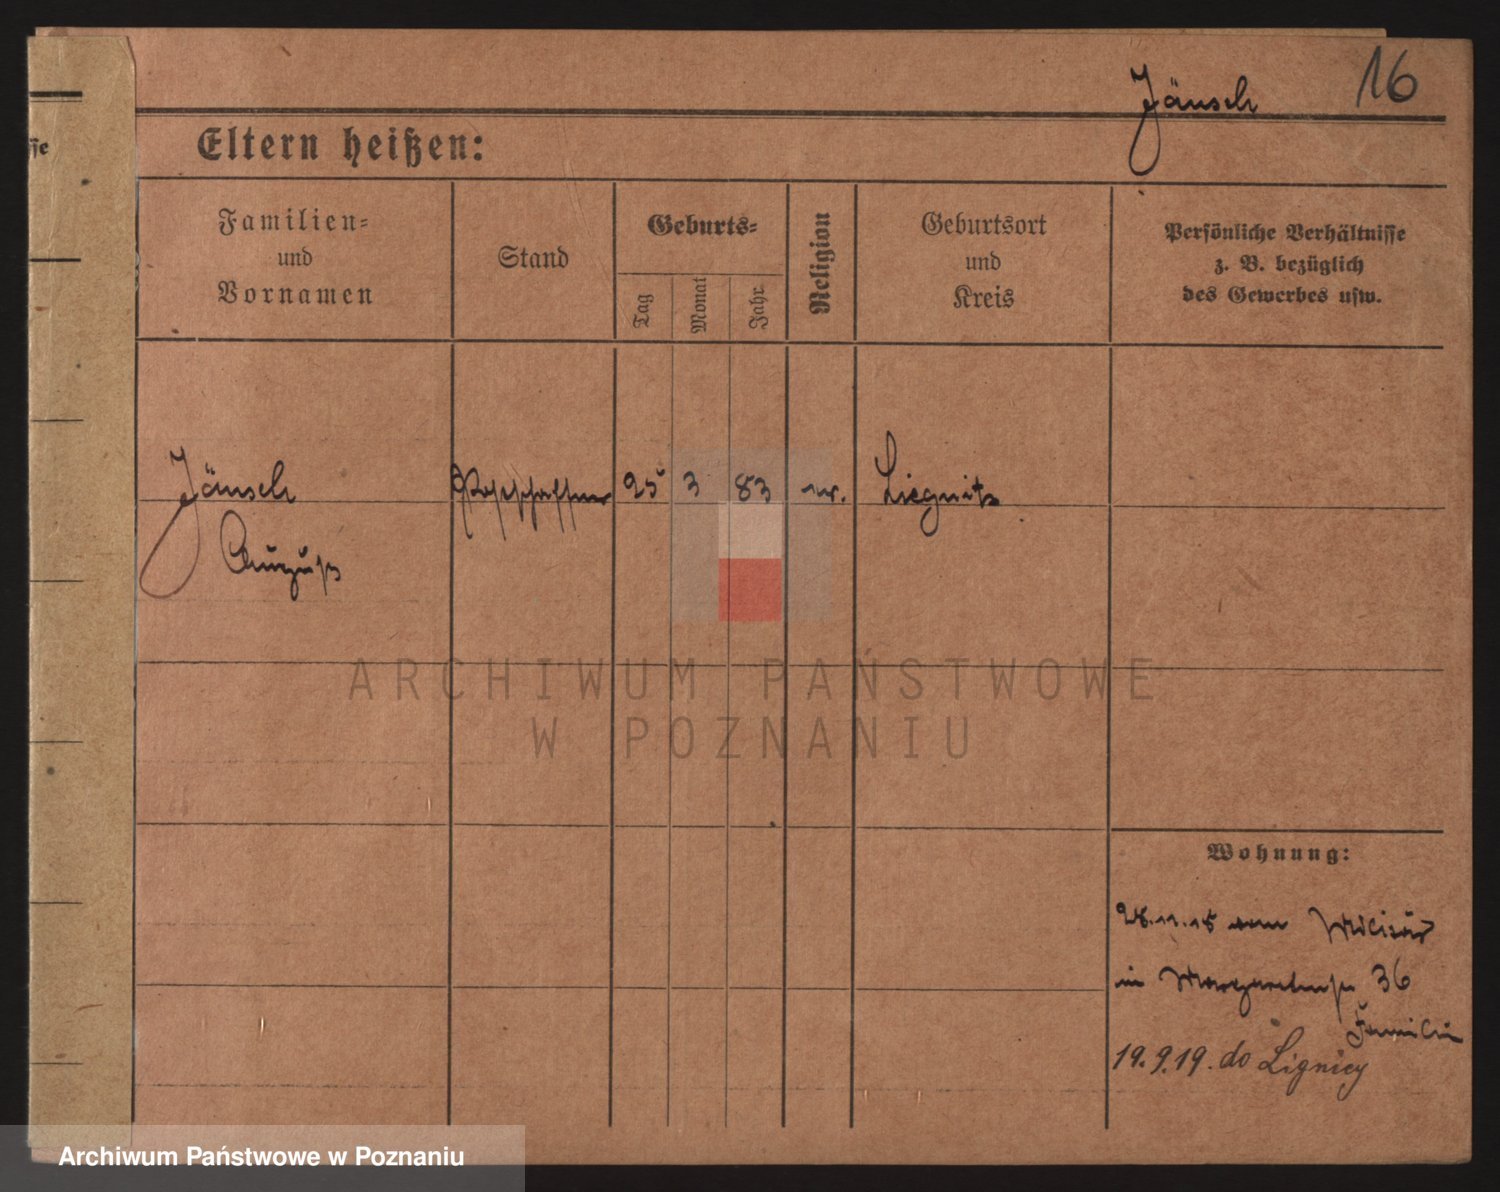 Jänsch 16
ſſe
Eltern heißen:
Familien-
und
Vornamen
Stand
Geburts-
Tag
Monat
Jahr
Religion
Geburtsort
und
Kreis
Persönliche Verhältnisse
z. B. bezüglich
des Gewerbes usw.
Jänsch
August
Postschaffner
25 3 83
Liegnitz
ARCHIWUM PAŃSTWOWE
W POZNANIU
Wohnung:
28.11.15 vom Militär
in Margaretenstr 36
Familie
19.9.19. do Lignicy
Archiwum Państwowe w Poznaniu